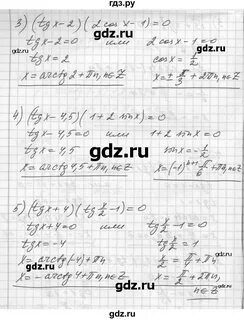 гдз.ру
3) (tgx-2)(2cosx-1)=0
tgx-2=0 или 2cosx-1=0
tgx=2 cosx=1/2
x=arctg2+πn, n∈Z x=±π/3+2πn, n∈Z
4) (tgx-4,5)(1+2sinx)=0
tgx-4,5=0 или 1+2sinx=0
tgx=4,5 sinx=-1/2
x=arctg4,5+πn, n∈Z x=(-1)ⁿ⁺¹ π/6+πn, n∈Z
5) (tgx+4)(tg x/2-1)=0
tgx+4=0 или tg x/2-1=0
tgx=-4 tg x/2=1
x=arctg(-4)+πn x/2=π/4+πn
x=-arctg4+πn, n∈Z x=π/2+2πn,
n∈Z
gdz.ru